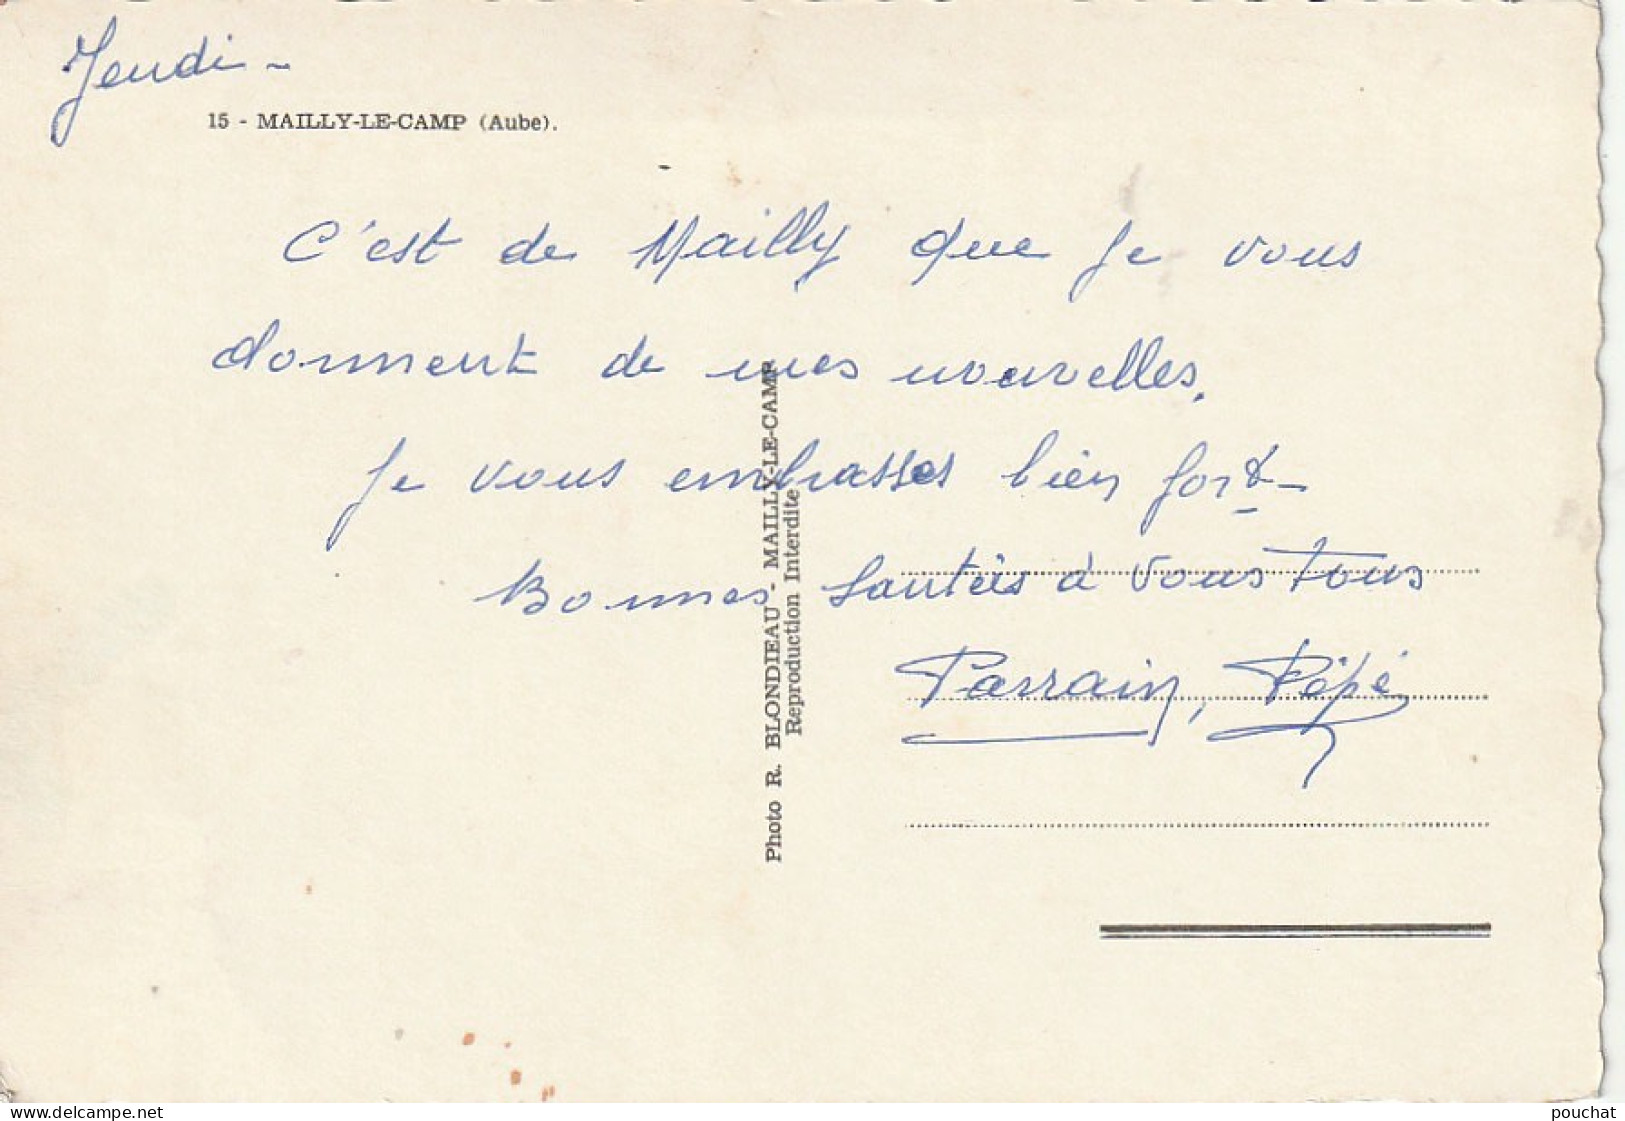 Jeudi -
15 - MAILLY-LE-CAMP (Aube).
C'est de Mailly que je vous
donnent de mes nouvelles.
Je vous embrasses bien fort -
Bonnes Santées à vous tous
Parrain, Pépé
Photo R. BLONDIEAU - MAILLY-LE-CAMP
Reproduction Interdite
www.delcampe.net
pouchat